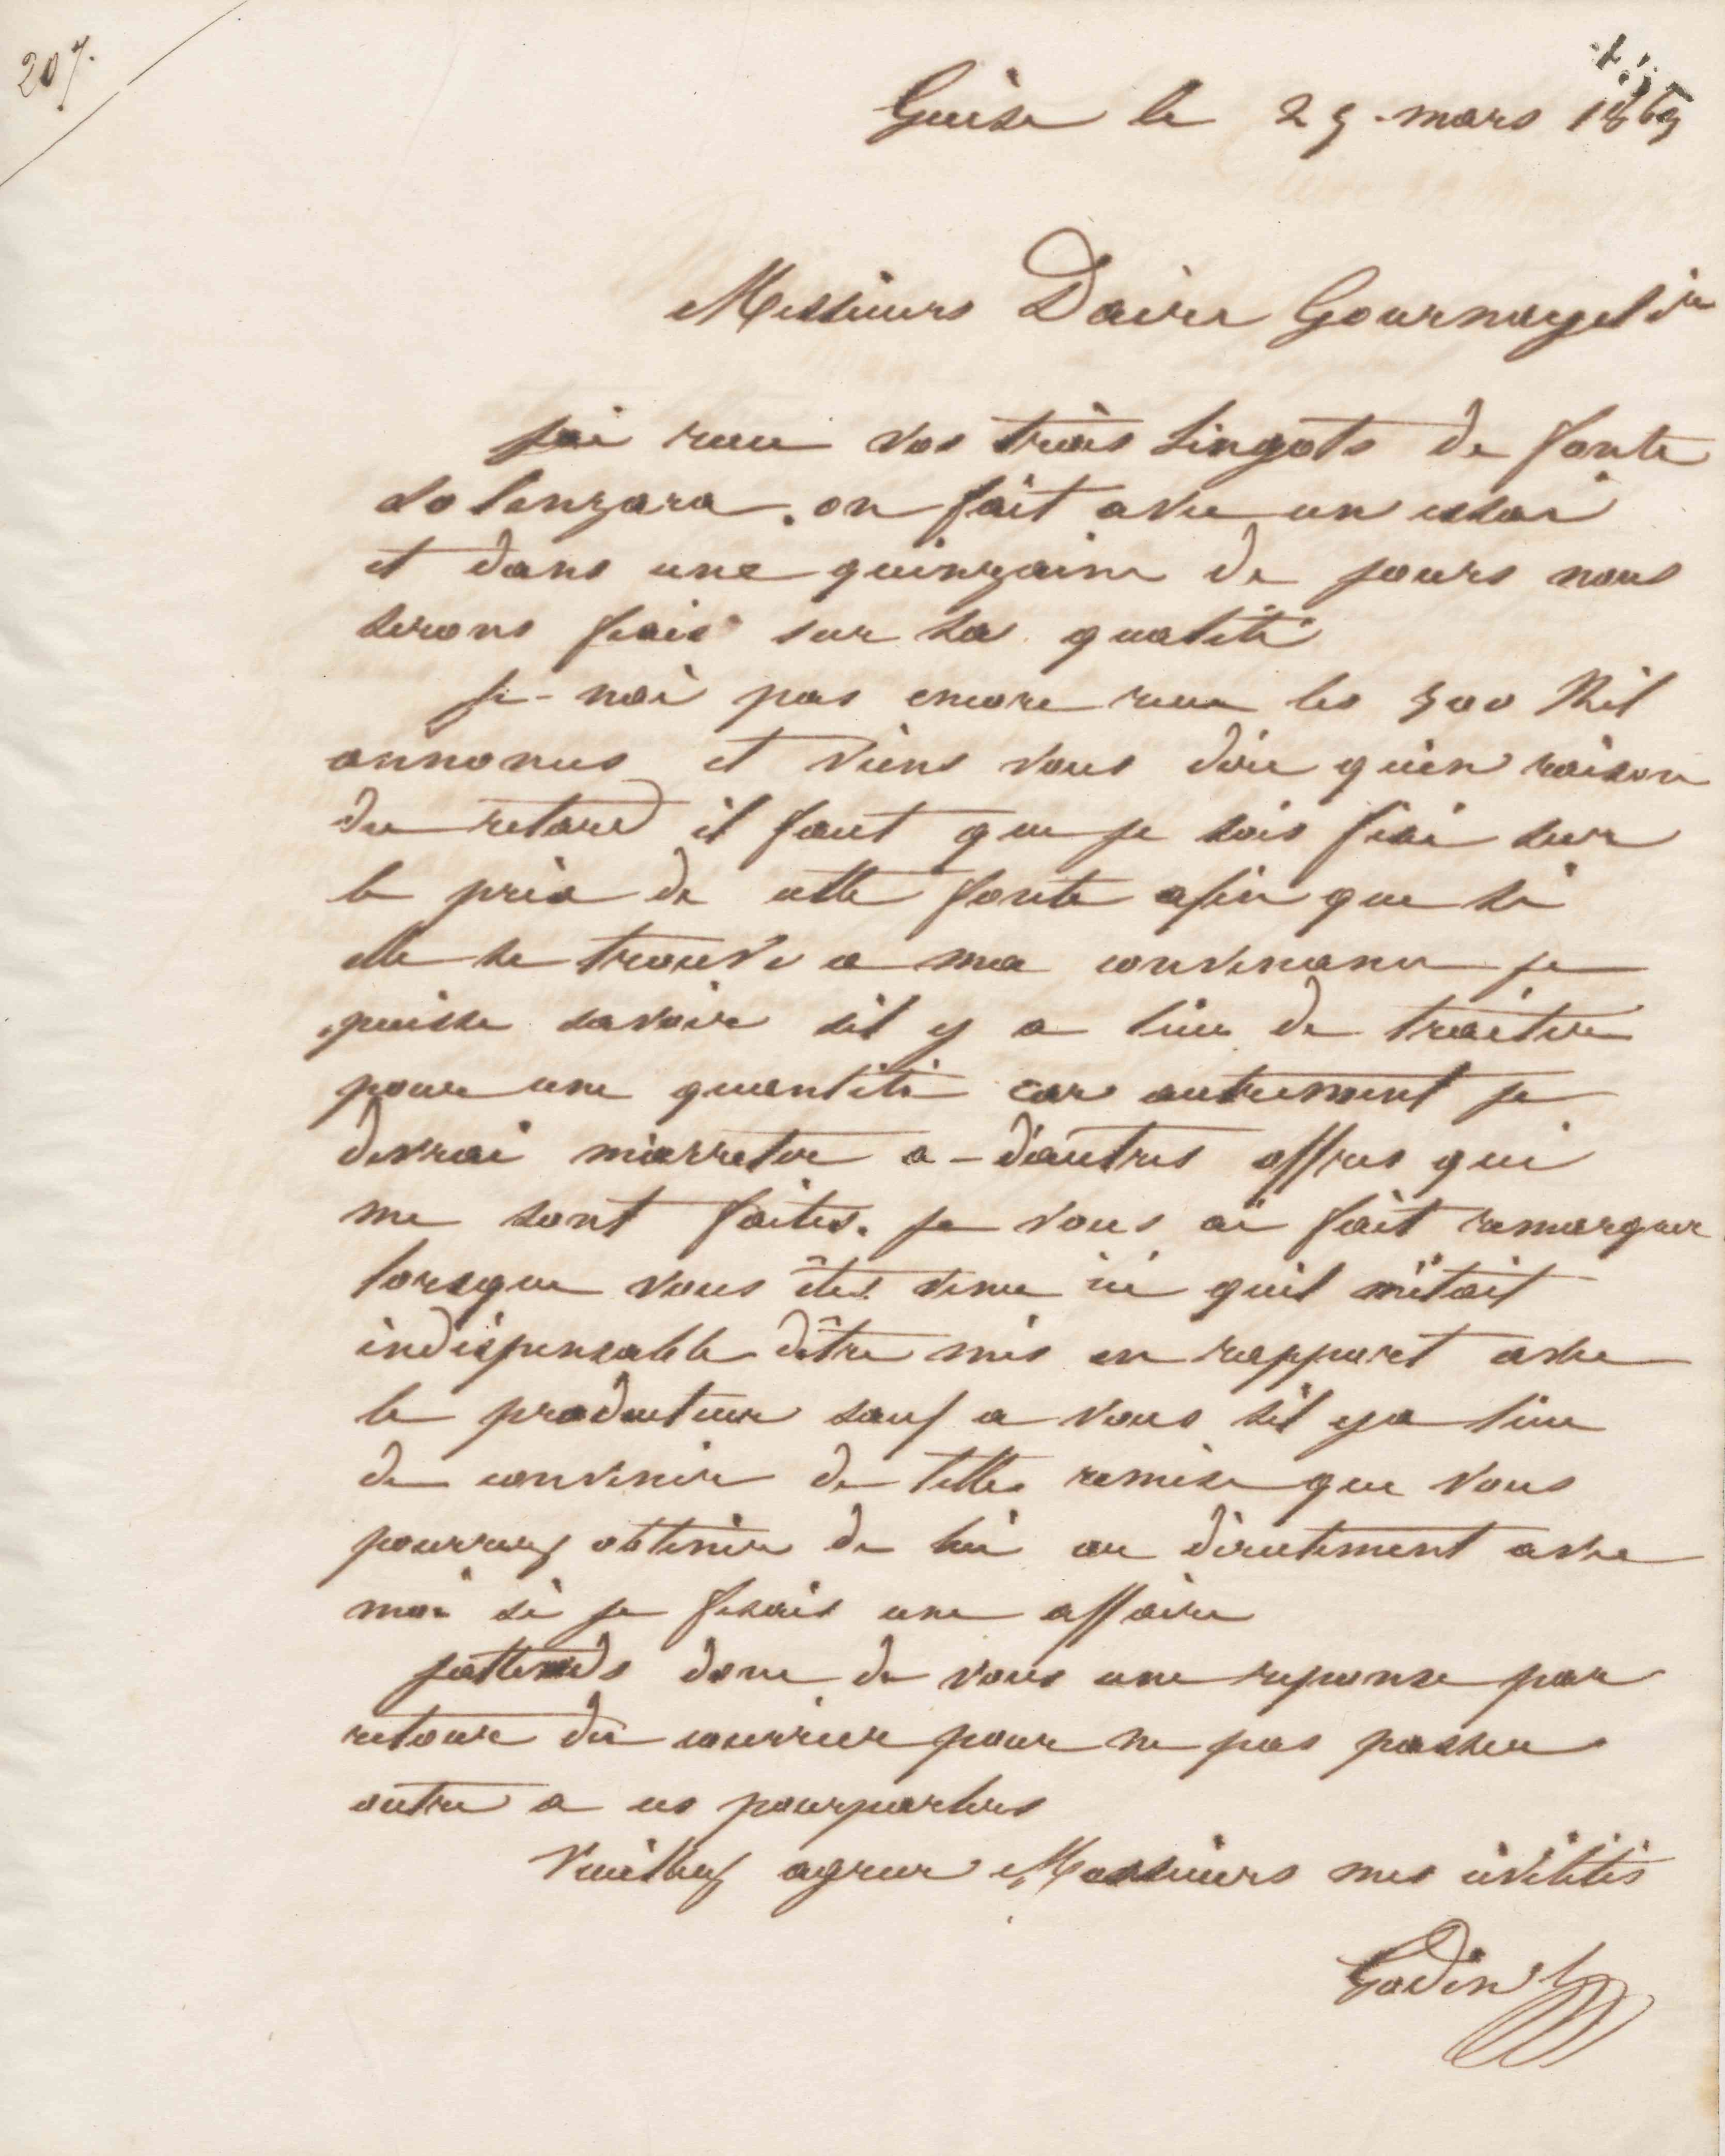 207.
Guise le 29 mars 1869
Messieurs Daire Gournay et Cie
jai recu vos trois lingots de fonte
Solenzara. on fait avec un essai
et dans une quinzaine de jours nous
serons fixé sur sa qualité
je nai pas encore recu les 500 Kil
annoncés et viens vous dire quen raison
du retard il faut que je sois fixé sur
le prix de cette fonte afin que si
elle se trouve a ma convenance je
puisse savoir sil y a lieu de traiter
pour une quantité car autrement je
devrai marreter a dautres offres qui
me sont faites. je vous ai fait remarquer
lorsque vous êtes venu ici quil métait
indispensable dêtre mis en rapport avec
le producteur sauf a vous sil ya lieu
de convenir de telle remise que vous
pourrez obtenir de lui ou directement avec
moi si je fesais une affaire
jattends donc de vous une reponse par
retour du courrier pour ne pas passer
outre a ces pourparlers
Veuillez agreer Messieurs mes civilités
Godin